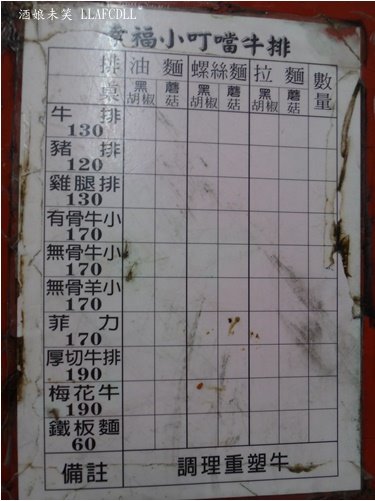 酒娘未笑 LLAFCDLL
幸福小叮噹牛排
排 油 麵 螺絲麵 拉 麵 數量
桌 黑胡椒 蘑菇 黑胡椒 蘑菇 黑胡椒 蘑菇
牛 排
130
豬 排
120
雞腿排
130
有骨牛小
170
無骨牛小
170
無骨羊小
170
菲 力
170
厚切牛排
190
梅花牛
190
鐵板麵
60
備註 調理重塑牛